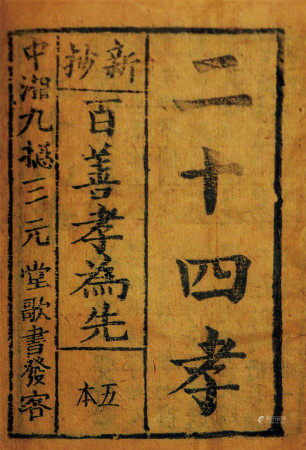 二十四孝
新抄
百善孝為先
五本
中湘九摠三元堂歌書發客